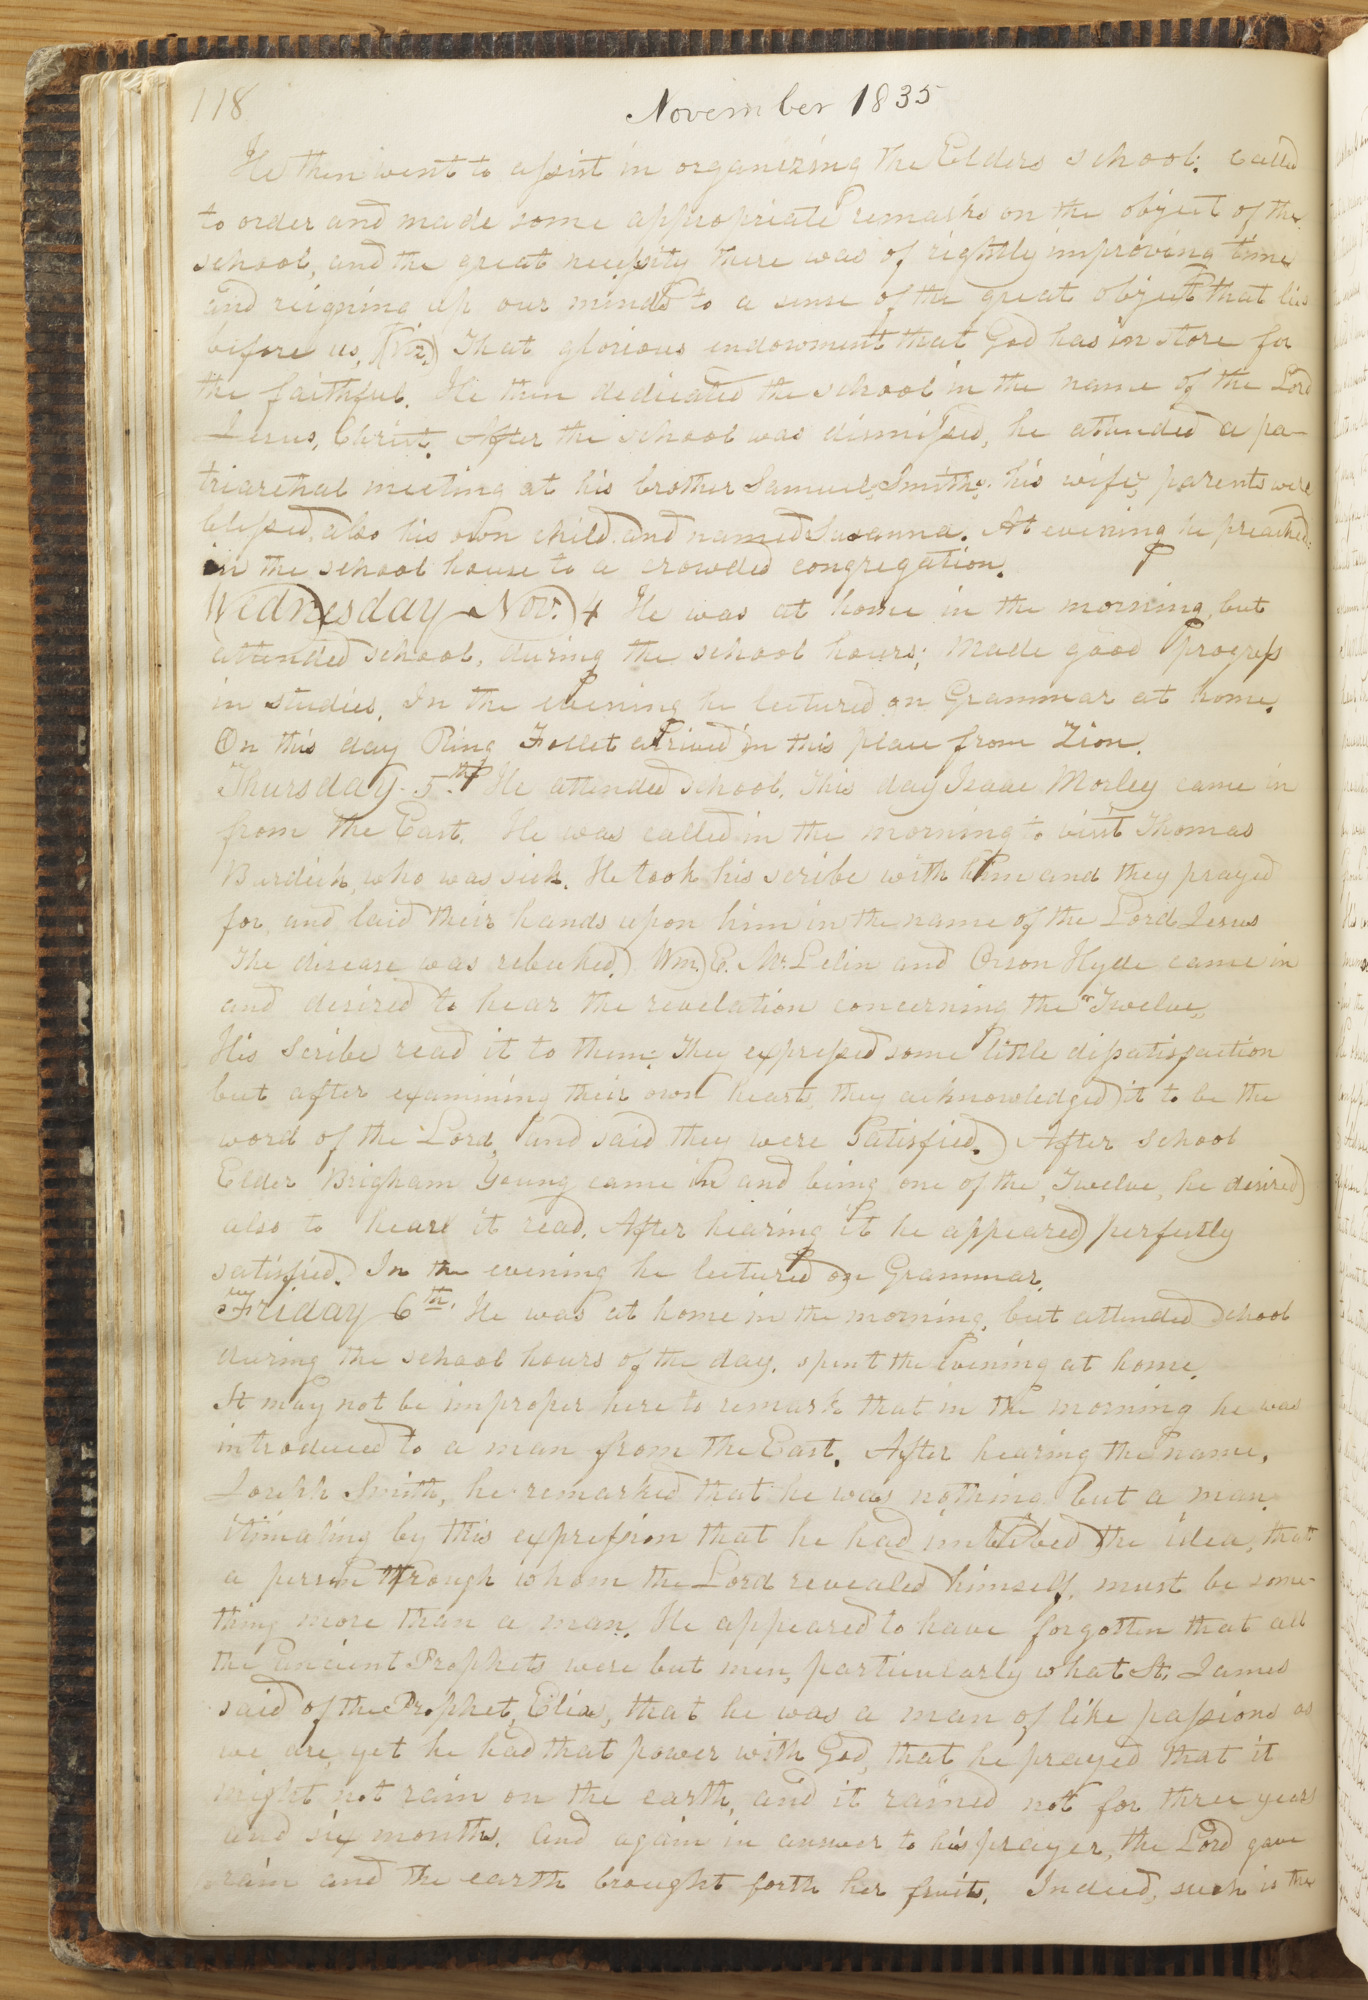 118
November 1835
He then went to assist in organizing the Elders school: called
to order and made some appropriate remarks on the object of the
school, and the great necessity there was of rightly improving time
and reigning up our minds to a sense of the great object that lies
before us, (viz) That glorious endowment that God has in store for
the faithful. He then dedicated the school in the name of the Lord
Jesus, Christ. After the school was dismissed, he attended a pa-
triarchal meeting at his brother Samuel, Smiths. his wifes parents were
blessed, also his own child and named Susanna. At evening he preached
in the school house to a crowded congregation.
Wednesday Nov. 4 He was at home in the morning, but
attended school, during the school hours; Made good progress
in studies. In the evening he lectured on Grammar at home.
On this day King Follet arrived in this place from Zion.
Thursday 5.th He attended school. This day Isaac Morley came in
from the East. He was called in the morning to visit Thomas
Burdick, who was sick. He took his scribe with him and they prayed
for, and laid their hands upon him in the name of the Lord Jesus
The disease was rebuked. Wm. E. Mc. Lelin and Orson Hyde came in
and desired to hear the revelation concerning the "Twelve,,
His Scribe read it to them: They expressed some little dissatisfaction
but after examining their own hearts, they acknowledged it to be the
word of the Lord, and said they were Satisfied. After school
Elder Brigham Young came in and being one of the, Twelve, he desired
also to hear it read. After hearing it he appeared perfectly
satisfied. In the evening he lectured on Grammar.
Friday 6th. He was at home in the morning, but attended school
during the school hours of the day. spent the Evening at home.
It may not be improper here to remark that in the morning he was
introduced to a man from the East. After hearing the name,
Joseph Smith, he remarked that he was nothing but a man:
itimating by this expression that he had imbibed the idea, that
a person through whom the Lord revealed himself, must be some-
thing more than a man. He appeared to have forgotten that all
the Ancient Prophets were but men, particularly what St. James
said of the Prophet, Elias, that he was a man of like passions as
we are, yet he had that power with God, that he prayed that it
might not rain on the earth, and it rained not for three years
and six months. And again in answer to his prayer, the Lord gave
rain and the earth brought forth her fruit. Indeed, such is the